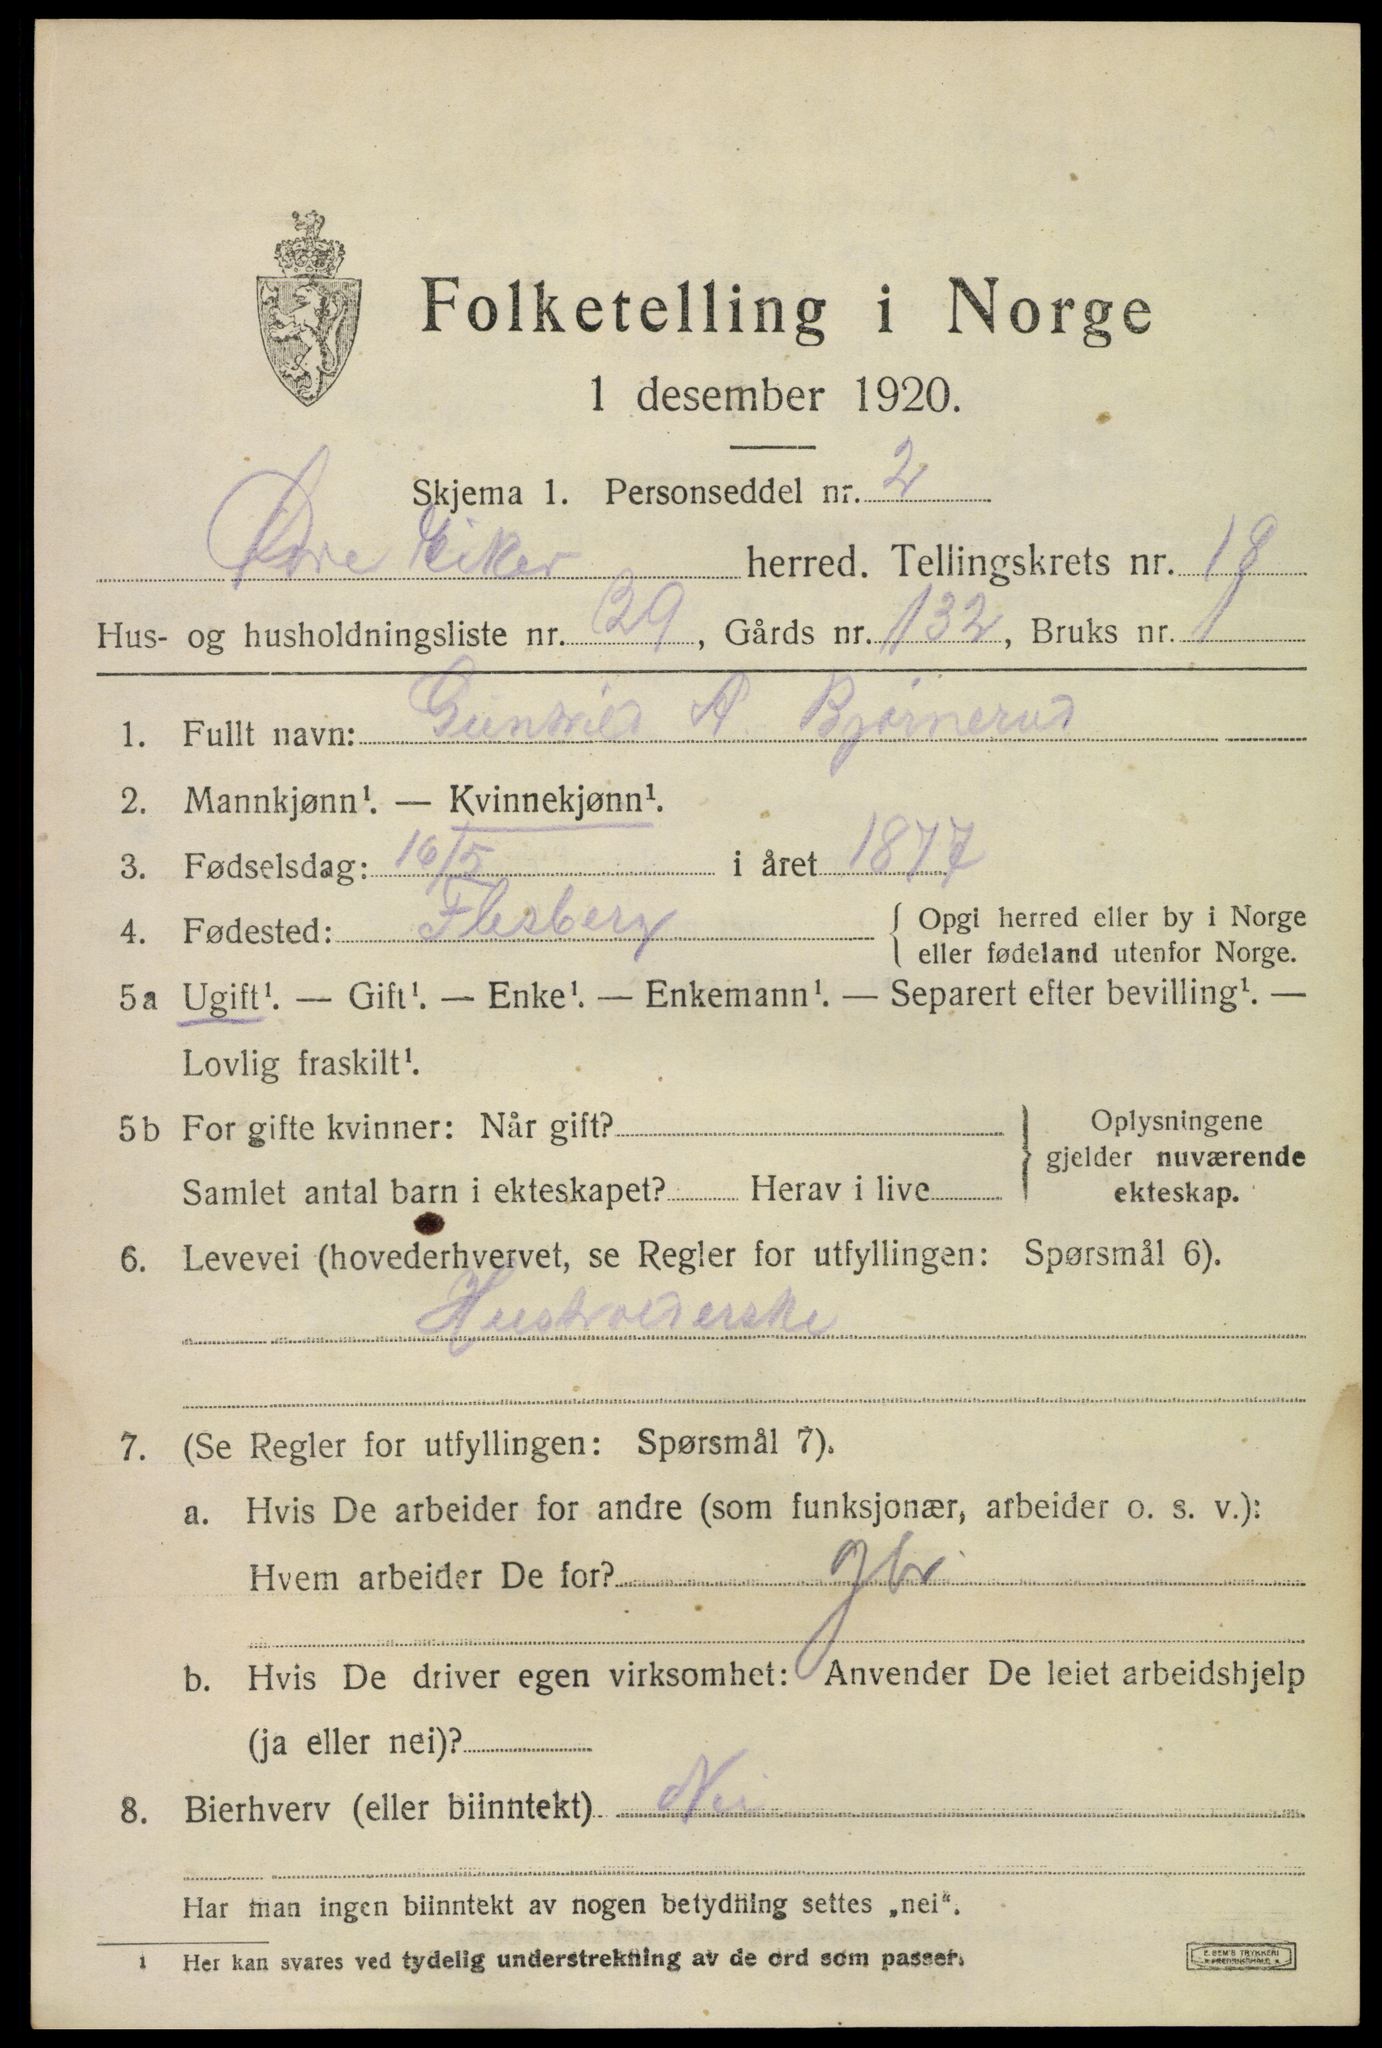 Folketelling i Norge
1 desember 1920.
Skjema 1. Personseddel nr. 2
Øvre Eiker herred. Tellingskrets nr. 18
Hus- og husholdningsliste nr. 39, Gårds nr. 132, Bruks nr. 1
1. Fullt navn: Gunhild A. Bjørnerud
2. Mannkjønn¹. — Kvinnekjønn¹.
3. Fødselsdag: 16/5 i året 1877
4. Fødested: Flesberg { Opgi herred eller by i Norge
eller fødeland utenfor Norge.
5a Ugift¹. — Gift¹. — Enke¹. — Enkemann¹. — Separert efter bevilling¹. —
Lovlig fraskilt¹.
5b For gifte kvinner: Når gift?
Samlet antal barn i ekteskapet? Herav i live
} Oplysningene
gjelder nuværende
ekteskap.
6. Levevei (hovederhvervet, se Regler for utfyllingen: Spørsmål 6).
Husholderske
7. (Se Regler for utfyllingen: Spørsmål 7).
a. Hvis De arbeider for andre (som funksjonær, arbeider o. s. v.):
Hvem arbeider De for? Gbr
b. Hvis De driver egen virksomhet: Anvender De leiet arbeidshjelp
(ja eller nei)?
8. Bierhverv (eller biinntekt) Nei
Har man ingen biinntekt av nogen betydning settes „nei“.
1 Her kan svares ved tydelig understrekning av de ord som passer.
E. SEM'S TRYKKERI
FREDRIKSHALD